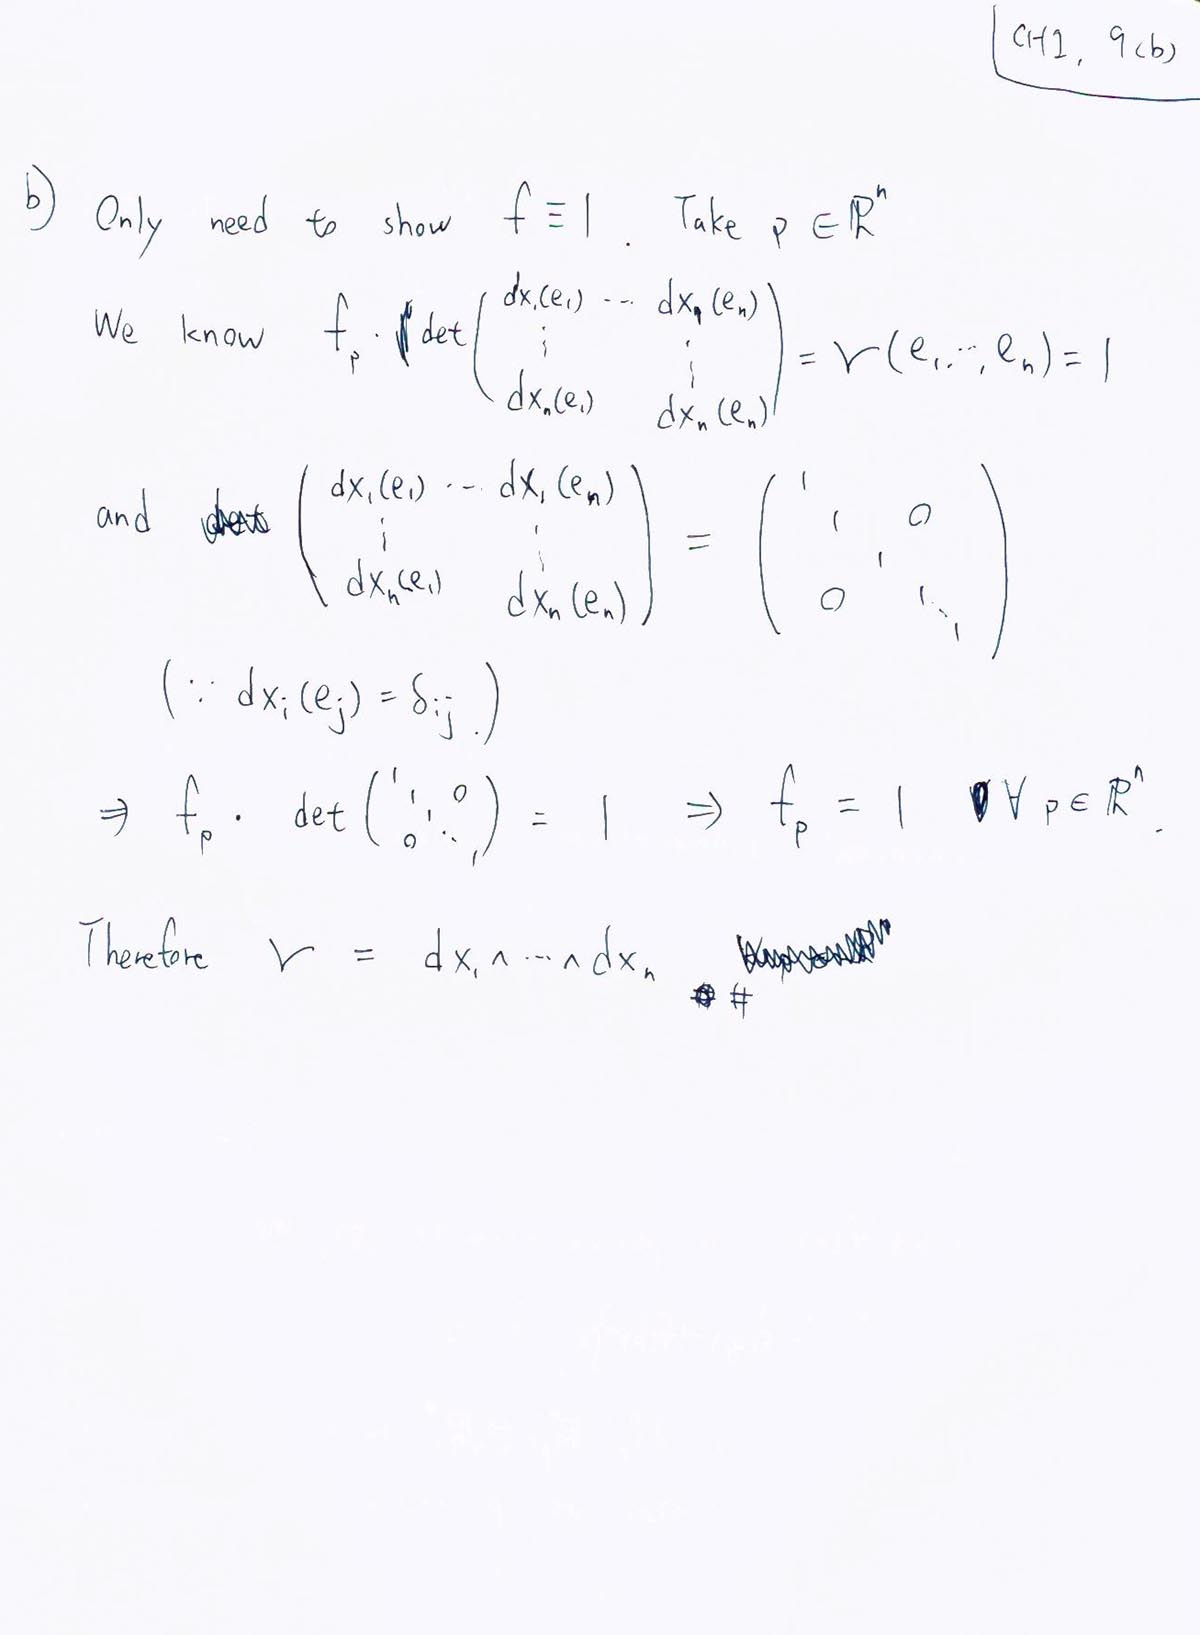 CH1, 9(b)
b) Only need to show f ≡ 1. Take p ∈ ℝⁿ
We know f_p · det ( dx₁(e₁) ... dx₁(e_n)
⋮ ⋮
dx_n(e₁) dx_n(e_n) ) = ν(e₁, ..., e_n) = 1
and ( dx₁(e₁) ... dx₁(e_n)
⋮ ⋮
dx_n(e₁) dx_n(e_n) ) = ( 1
1 0
1
0 1 ⋱
1 )
(∵ dx_i(e_j) = δ_ij.)
⇒ f_p · det ( 1 1 0 0 1 ⋱ 1 ) = 1 ⇒ f_p = 1 ∀ p ∈ ℝⁿ.
Therefore ν = dx₁ ∧ ... ∧ dx_n
#